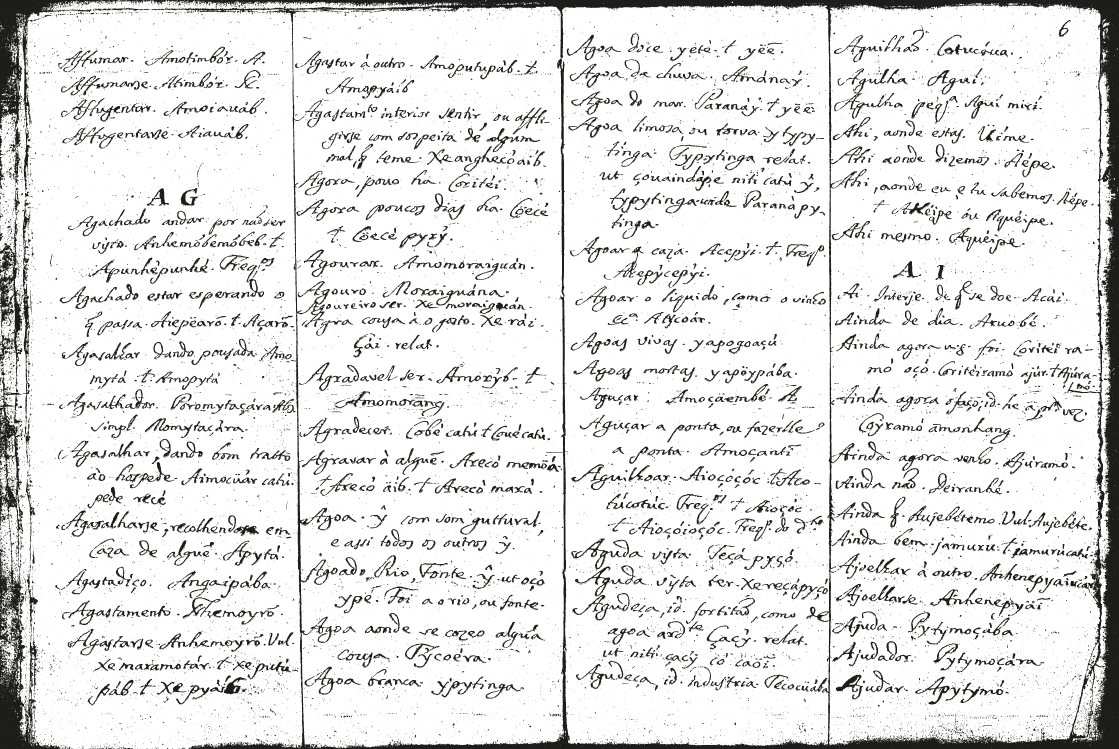 Affumar. Amotimbór. A.
Affumarse. Atimbór.
Affugentar. Amoiauáb.
Affugentarse. Aiauáb.
A G
Agachado andar por não ser
visto. Anhemóbemóbeb. t.
Apunhépunhé. Freq.
Agachado estar esperando o
q̃ passa. Aiepearõ. t. Açarõ.
Agasalhar dando pousada. Amo-
mytá. t. Amopytá
Agasalhador. Poromytaçára.
simpl. Momytaçára.
Agasalhar, dando bom tratto
áo hospede. Aimocüár catú.
pede recé
Agasalharse, recolhendose em
Caza de alguẽ. Apytá.
Agastadiço. Angaipába.
Agastamento. Nhemoyrõ.
Agastarse. Anhemoyrõ. Vul.
Xe maramotár. t. Xe putú-
páb. t. Xe pyáib.
Agastar á outro. Amoputupáb. t.
Amopyáib
Agastamto. interior sentir, ou affli-
girse com sospeita de algum
mal, q̃ teme. Xe anghecóaib.
Agora, pouo ha. Coritéi.
Agora poucos dias ha. Coecé
t. Coecé pyrỹ.
Agourar. Amomoraiguán.
Agouro. Moraiguána.
Agoureiro ser. Xe moraiguán.
Agra cousa á o gosto. Xe rái.
Çái. relat.
Agradavel ser. Amorỹb. t.
Amomorang.
Agradecer. Cobé catú t. Coué catu.
Agravar á alguẽ. Arecó memoã.
t. Arecó áib. t. Arecó marã.
Agoa. ŷ com som guttural,
e assi todos os outros ŷ.
Agoado, Rio, Fonte. ŷ. ut oçó
ypé. Foi a o rio, ou fonte.
Agoa aonde se cozeo algũa
cousa. Pycoéra.
Agoa branca. ypytinga
Agoa doce. yeté. t. yeẽ.
Agoa da chuva. Amánaý.
Agoa do mar. Paranáý. t. yeẽ.
Agoa limosa, ou torva. ytypy-
tinga. Typytinga relat.
ut çouaindápe niti catú ŷ,
typytinga uide Paranápy-
tinga.
Agoar a caza. Acepýi. t. Freq.
Acepýcepýi.
Agoar o liquido, como o vinho
ecᵃ. Atycoár.
Agoas vivas. yapogoaçú
Agoas mortas. yapoypába.
Aguçar. Amoçaembé.
Aguçar a ponta, ou fazerlhe
a ponta. Amoçantĩ
Aguilhoar. Aioçóçóc t. Aco-
túcotúc Freq. t. Aioçóc
t. Aiocóioçóc. Freq. do dto.
Aguda vista. Teçá pyçó.
Aguda vista ter. Xe reçápyçó
Agudeza, id. sortitaõ, como de
agoa ardte. Çacý. relat.
ut niti çacý có caõi.
Agudeça, id. industria Tecocüába
6
Aguilhaõ. Cotucáua.
Agulha. Aguí.
Agulha peqᵃ. Aguí mirí.
Ahi, aonde estas. Uíme.
Ahi aonde dizemos. Aépe.
Ahi, aonde eu e tu sabemos. Aépe.
t. Akéipe ou Aquéipe.
Ahi mesmo. Aquéipe.
A I
Ai. Interje. de q̃ se doe. Acái.
Ainda de dia. Aruobé.
Ainda agora v.g. foi. Coritéi ra-
mó oçó. Coriteiramó ajúr. t. Ajúra-
mó.
Ainda agora o faço, id. he a prᵃ vez.
Coýramo amonhang.
Ainda agora venho. Ajúramó.
Ainda naõ. Deiranhé.
Ainda q̃. Aujebétemo. Vul. Aujebéte.
Ainda bem. jamurú. t. jamurú catú.
Ajoelhar á outro. Anhenepyáíucár
Ajoelharse. Anhenepyáí
Ajuda. Pytymoçába
Ajudador. Pytymoçára
Ajudar. Apytymó.